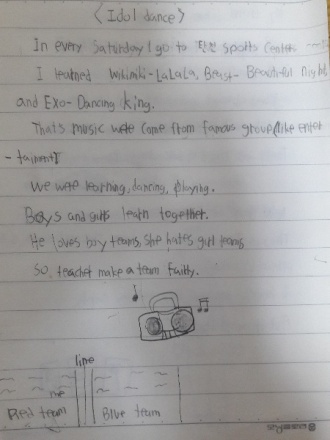 <Idol dance>
In every Saturday I go to 탄천 sports center
I learned Wikimiki-LaLaLa, Beast- Beautiful night
and Exo-Dancing king.
That's music were come from famous group(like enter
-tainment)
We were learning, dancing, playing.
Boys and girls learn together.
He loves boy teams, she hates girl teams
So, teacher make a team Fairly.
line
me
Red team Blue team